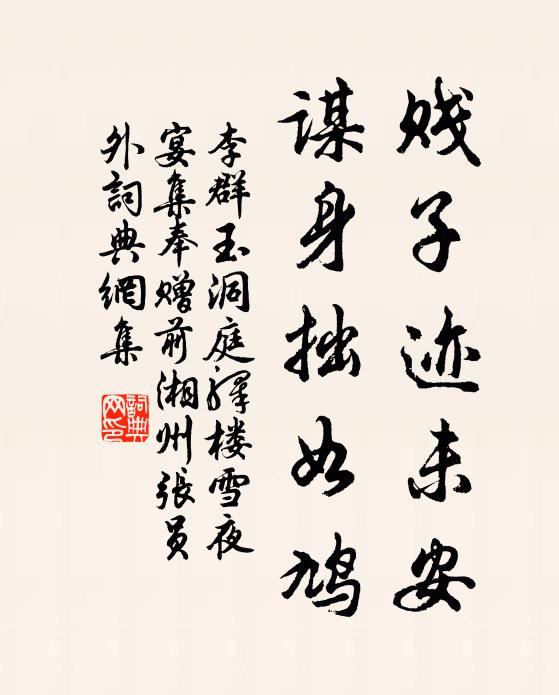 贱子迹未安
谋身拙如鸠
李群玉洞庭驿楼雪夜
宴集奉赠前湘州張員
外詞典網集
詞典
网印